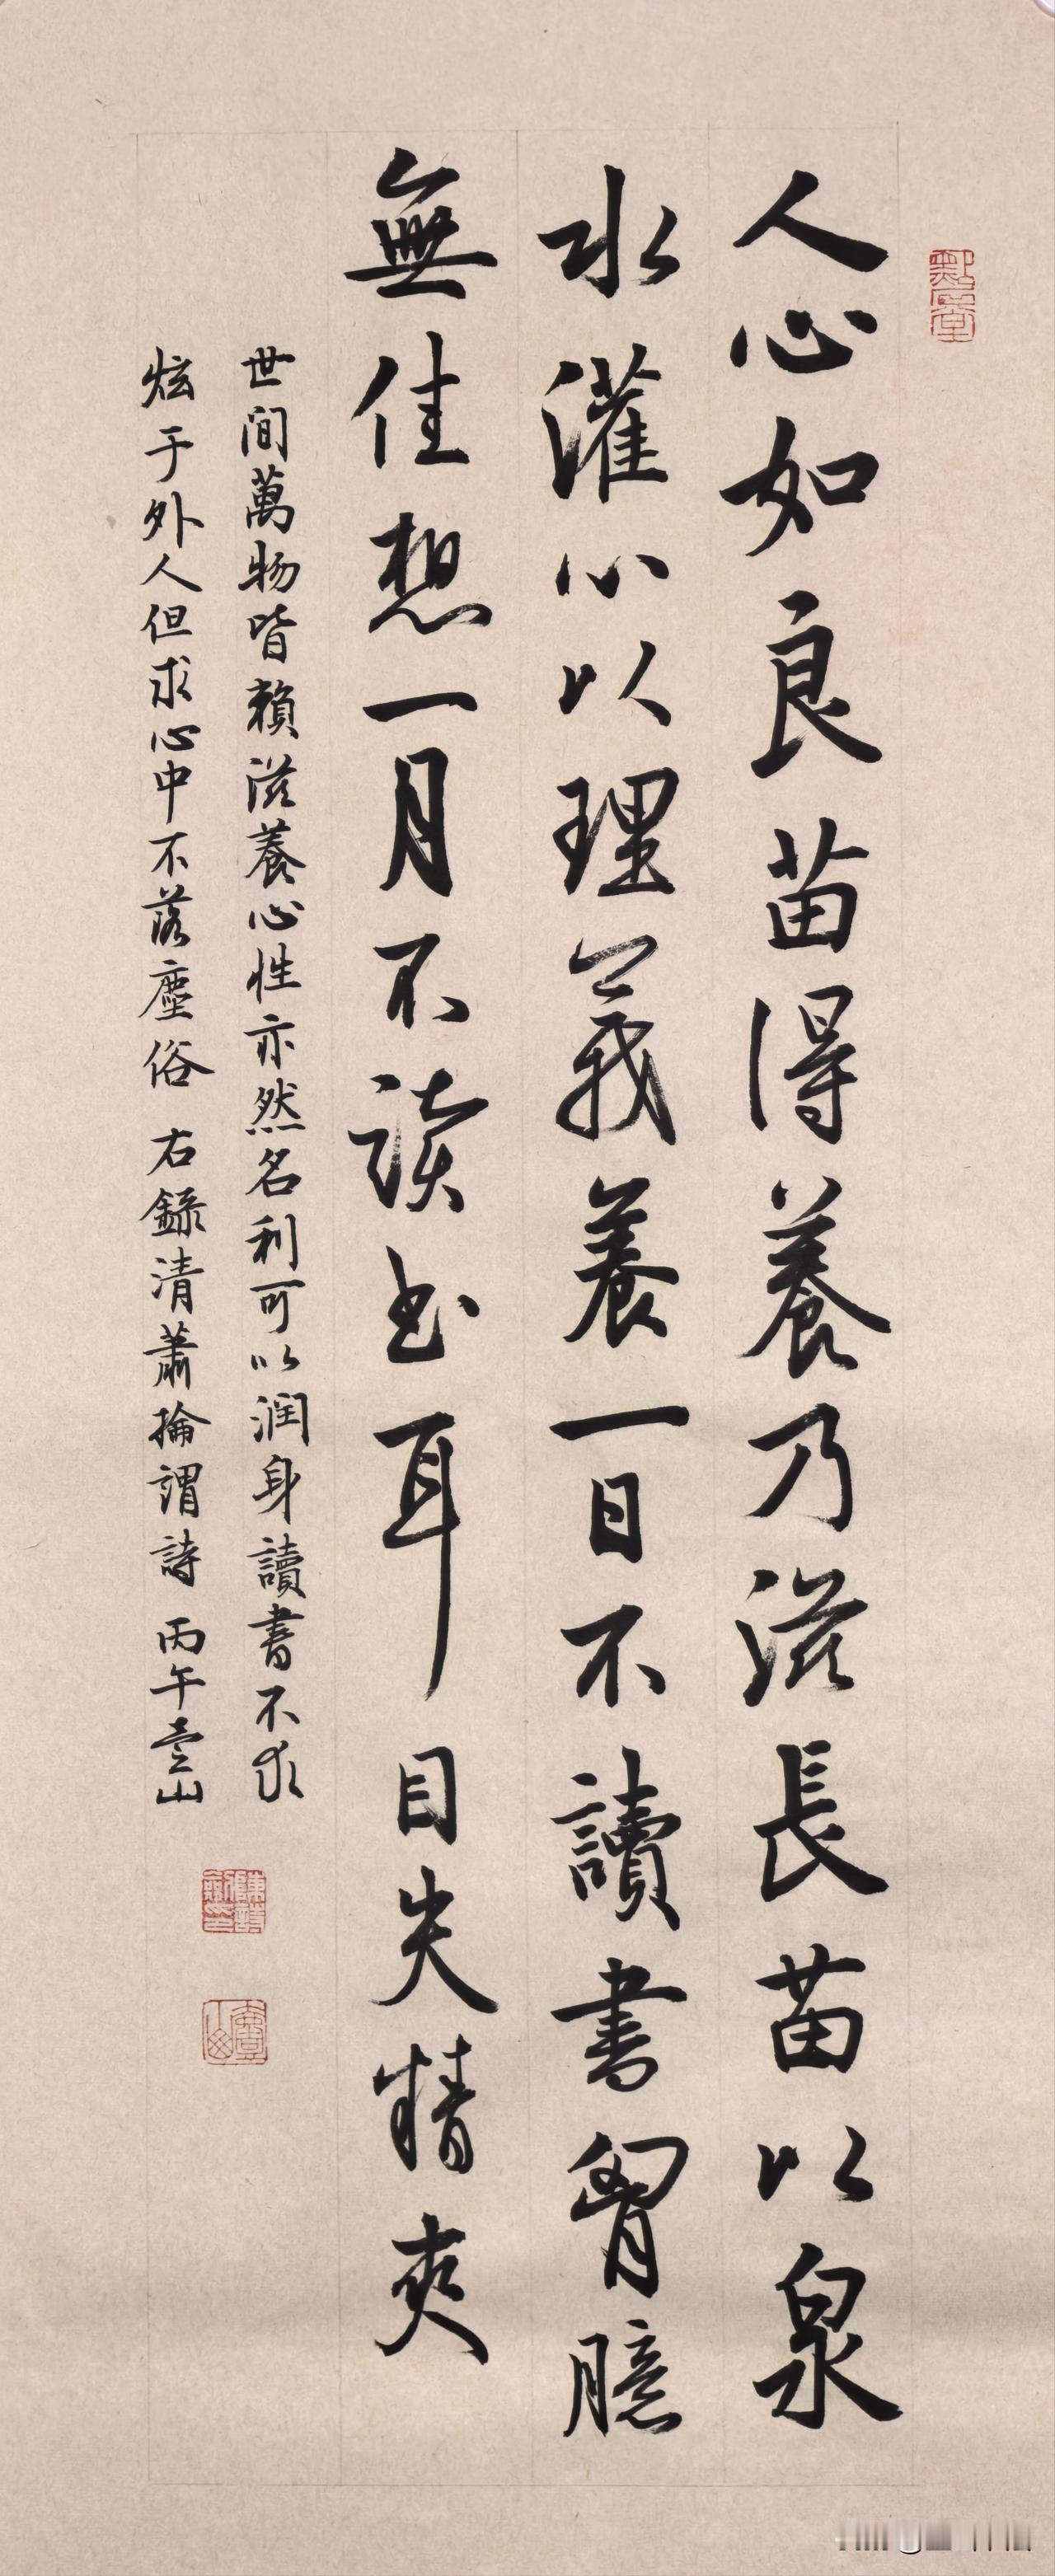 人心如良苗得養乃滋長苗以泉
水灌心以理義養一日不讀書胷臆
無佳想一月不读书耳目失精爽
世间萬物皆賴滋養心性亦然名利可以润身讀書不求
炫于外人但求心中不落塵俗 右錄清蕭掄謂詩 丙午壹山